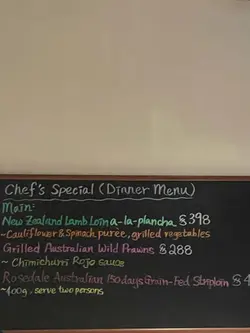 Chef's Special (Dinner Menu)
Main:
New Zealand Lamb Loin a-la-plancha $398
~Cauliflower & Spinach purée, grilled vegetables
Grilled Australian Wild Prawns $288
~ Chimichurri Rojo sauce
Rosedale Australian 150days Grain-Fed Striploin $4
~400g, serve two persons